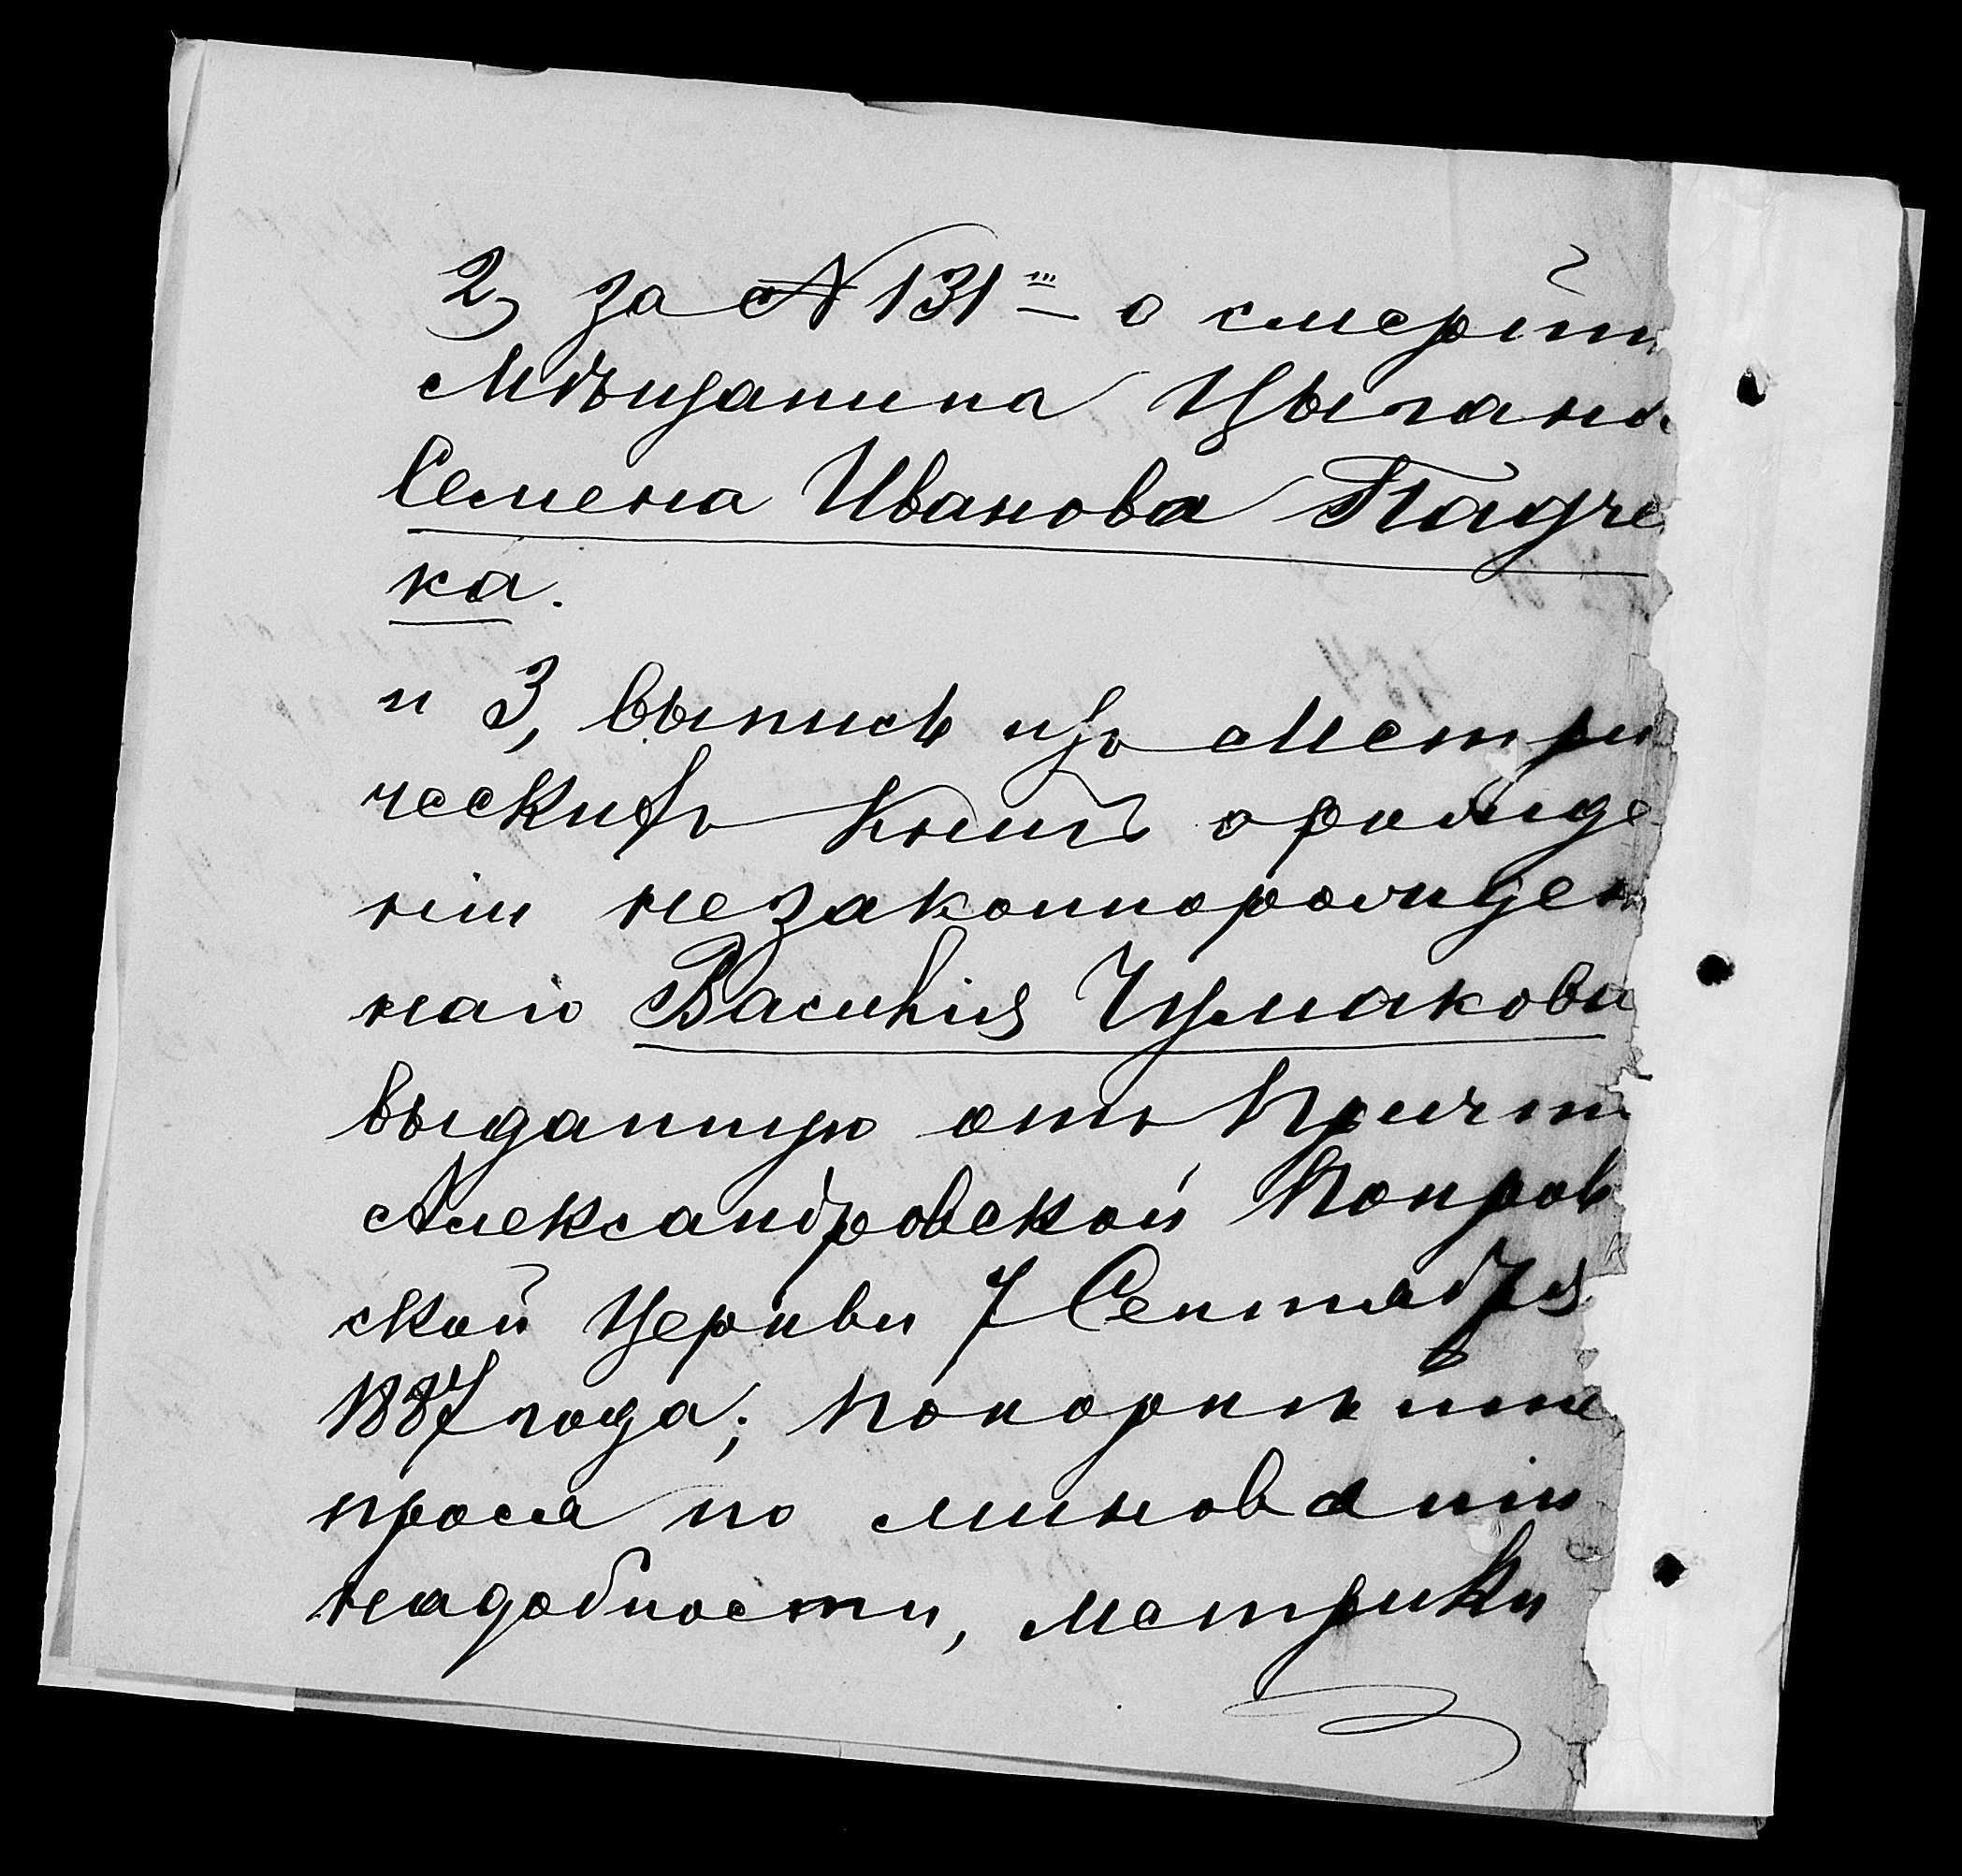 2, за №131м о смерти
Мѣщанина Цыгана
Семена Иванова Падче
ка.
и 3, выпись изъ Метри
ческихъ Книгъ о рожде
ніи незаконнорожден
наго Василія Чумакова
выданную отъ Причт
Александровской Покров
ской Церкви 7 Сентября
1887 года; покорнѣйше
прося по минованіи
надобности, метрики